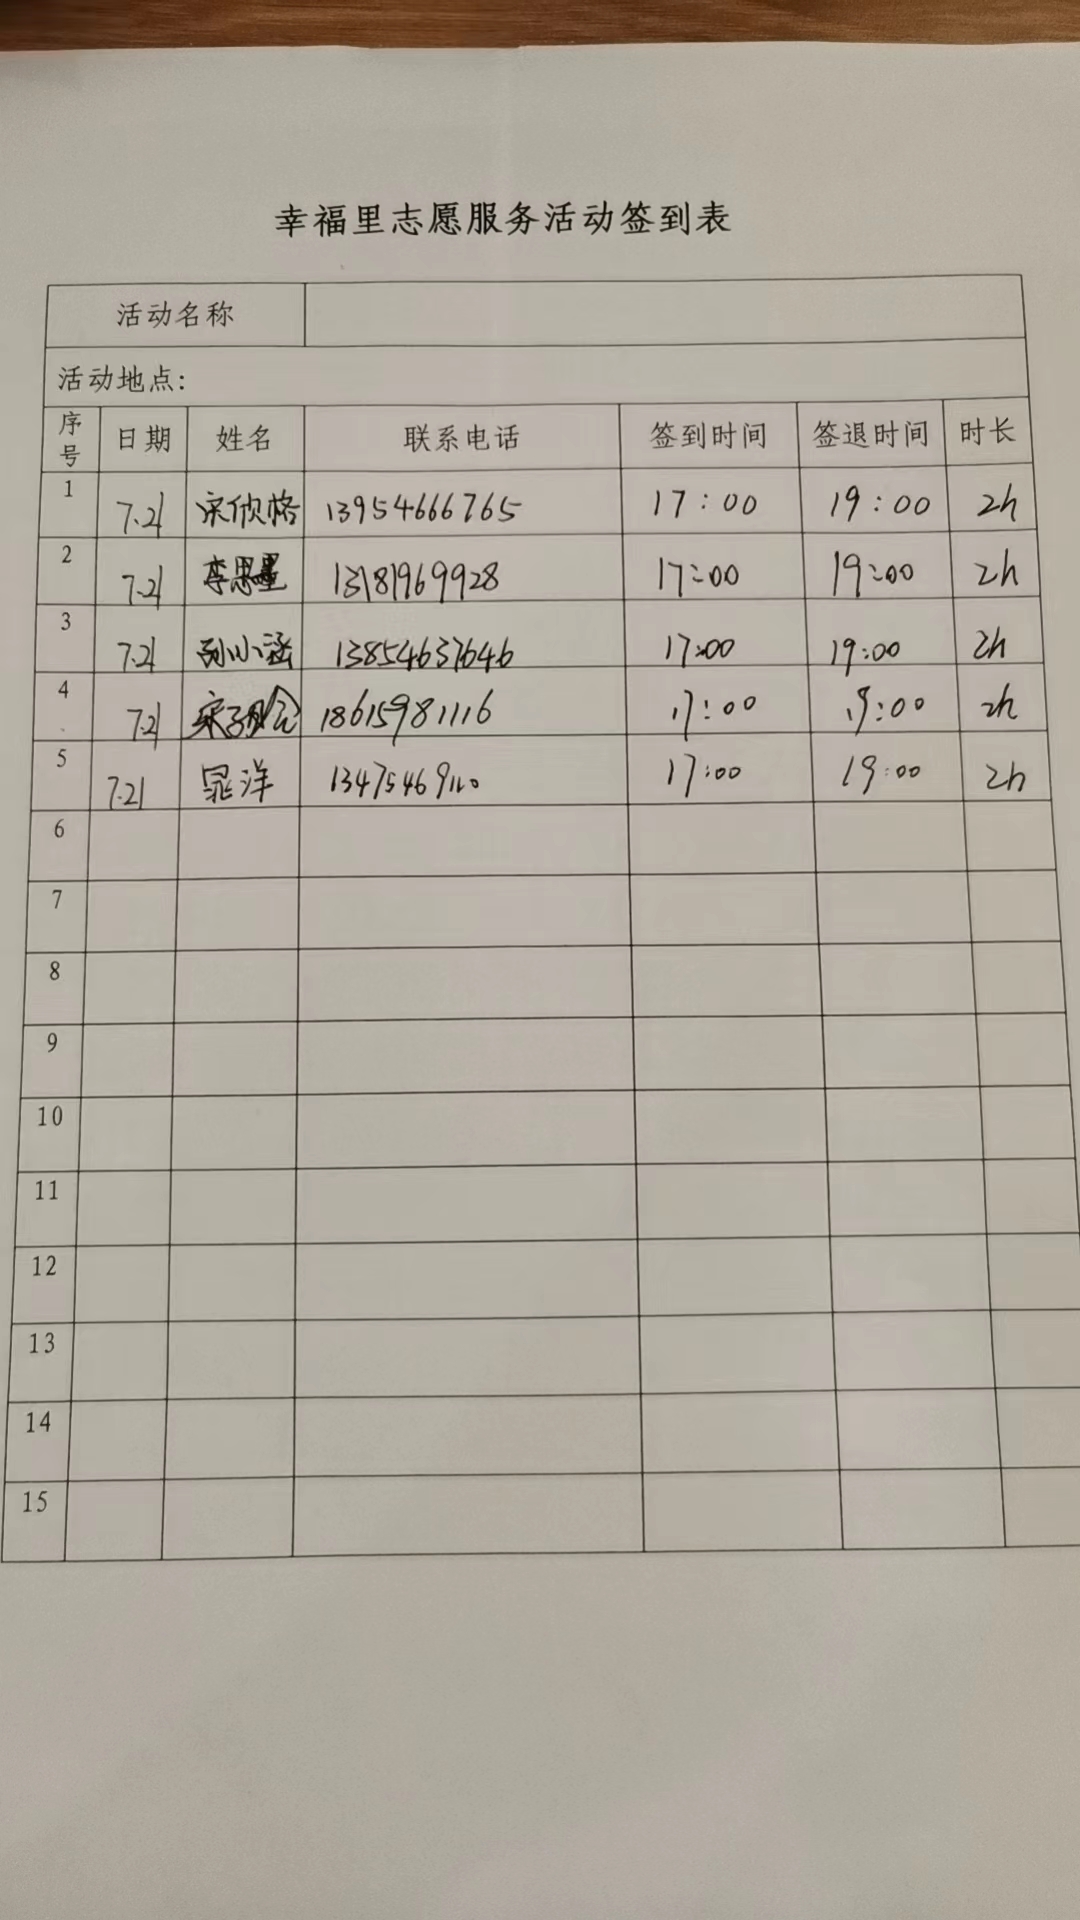 幸福里志愿服务活动签到表
活动名称
活动地点:
序号 日期 姓名 联系电话 签到时间 签退时间 时长
1 7.21 宋欣格 13954666765 17:00 19:00 2h
2 7.21 李思墨 13181969928 17:00 19:00 2h
3 7.21 孙小涵 13854637646 17:00 19:00 2h
4 7.21 18615981116 17:00 19:00 2h
5 7.21 晁洋 13475469110 17:00 19:00 2h
6
7
8
9
10
11
12
13
14
15